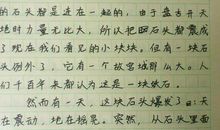 的石头都是连在一起的，由于盘古开天
地时力量太大，所以把四石头都震成
了现在我们看见的小块块，但有一块石
头例外了，它有一个故宫城那么大。人
们千百年来都认为这是一块缺石。
然而有一天，这块石头爆发了。白天
在震动，地在摇晃。突然，从石头里面